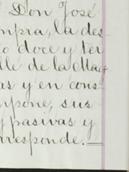 Don José
mpra, la des
o doce y ter
lle de la Mag
as y en cons
mpone, sus
pasivas y
rresponde.